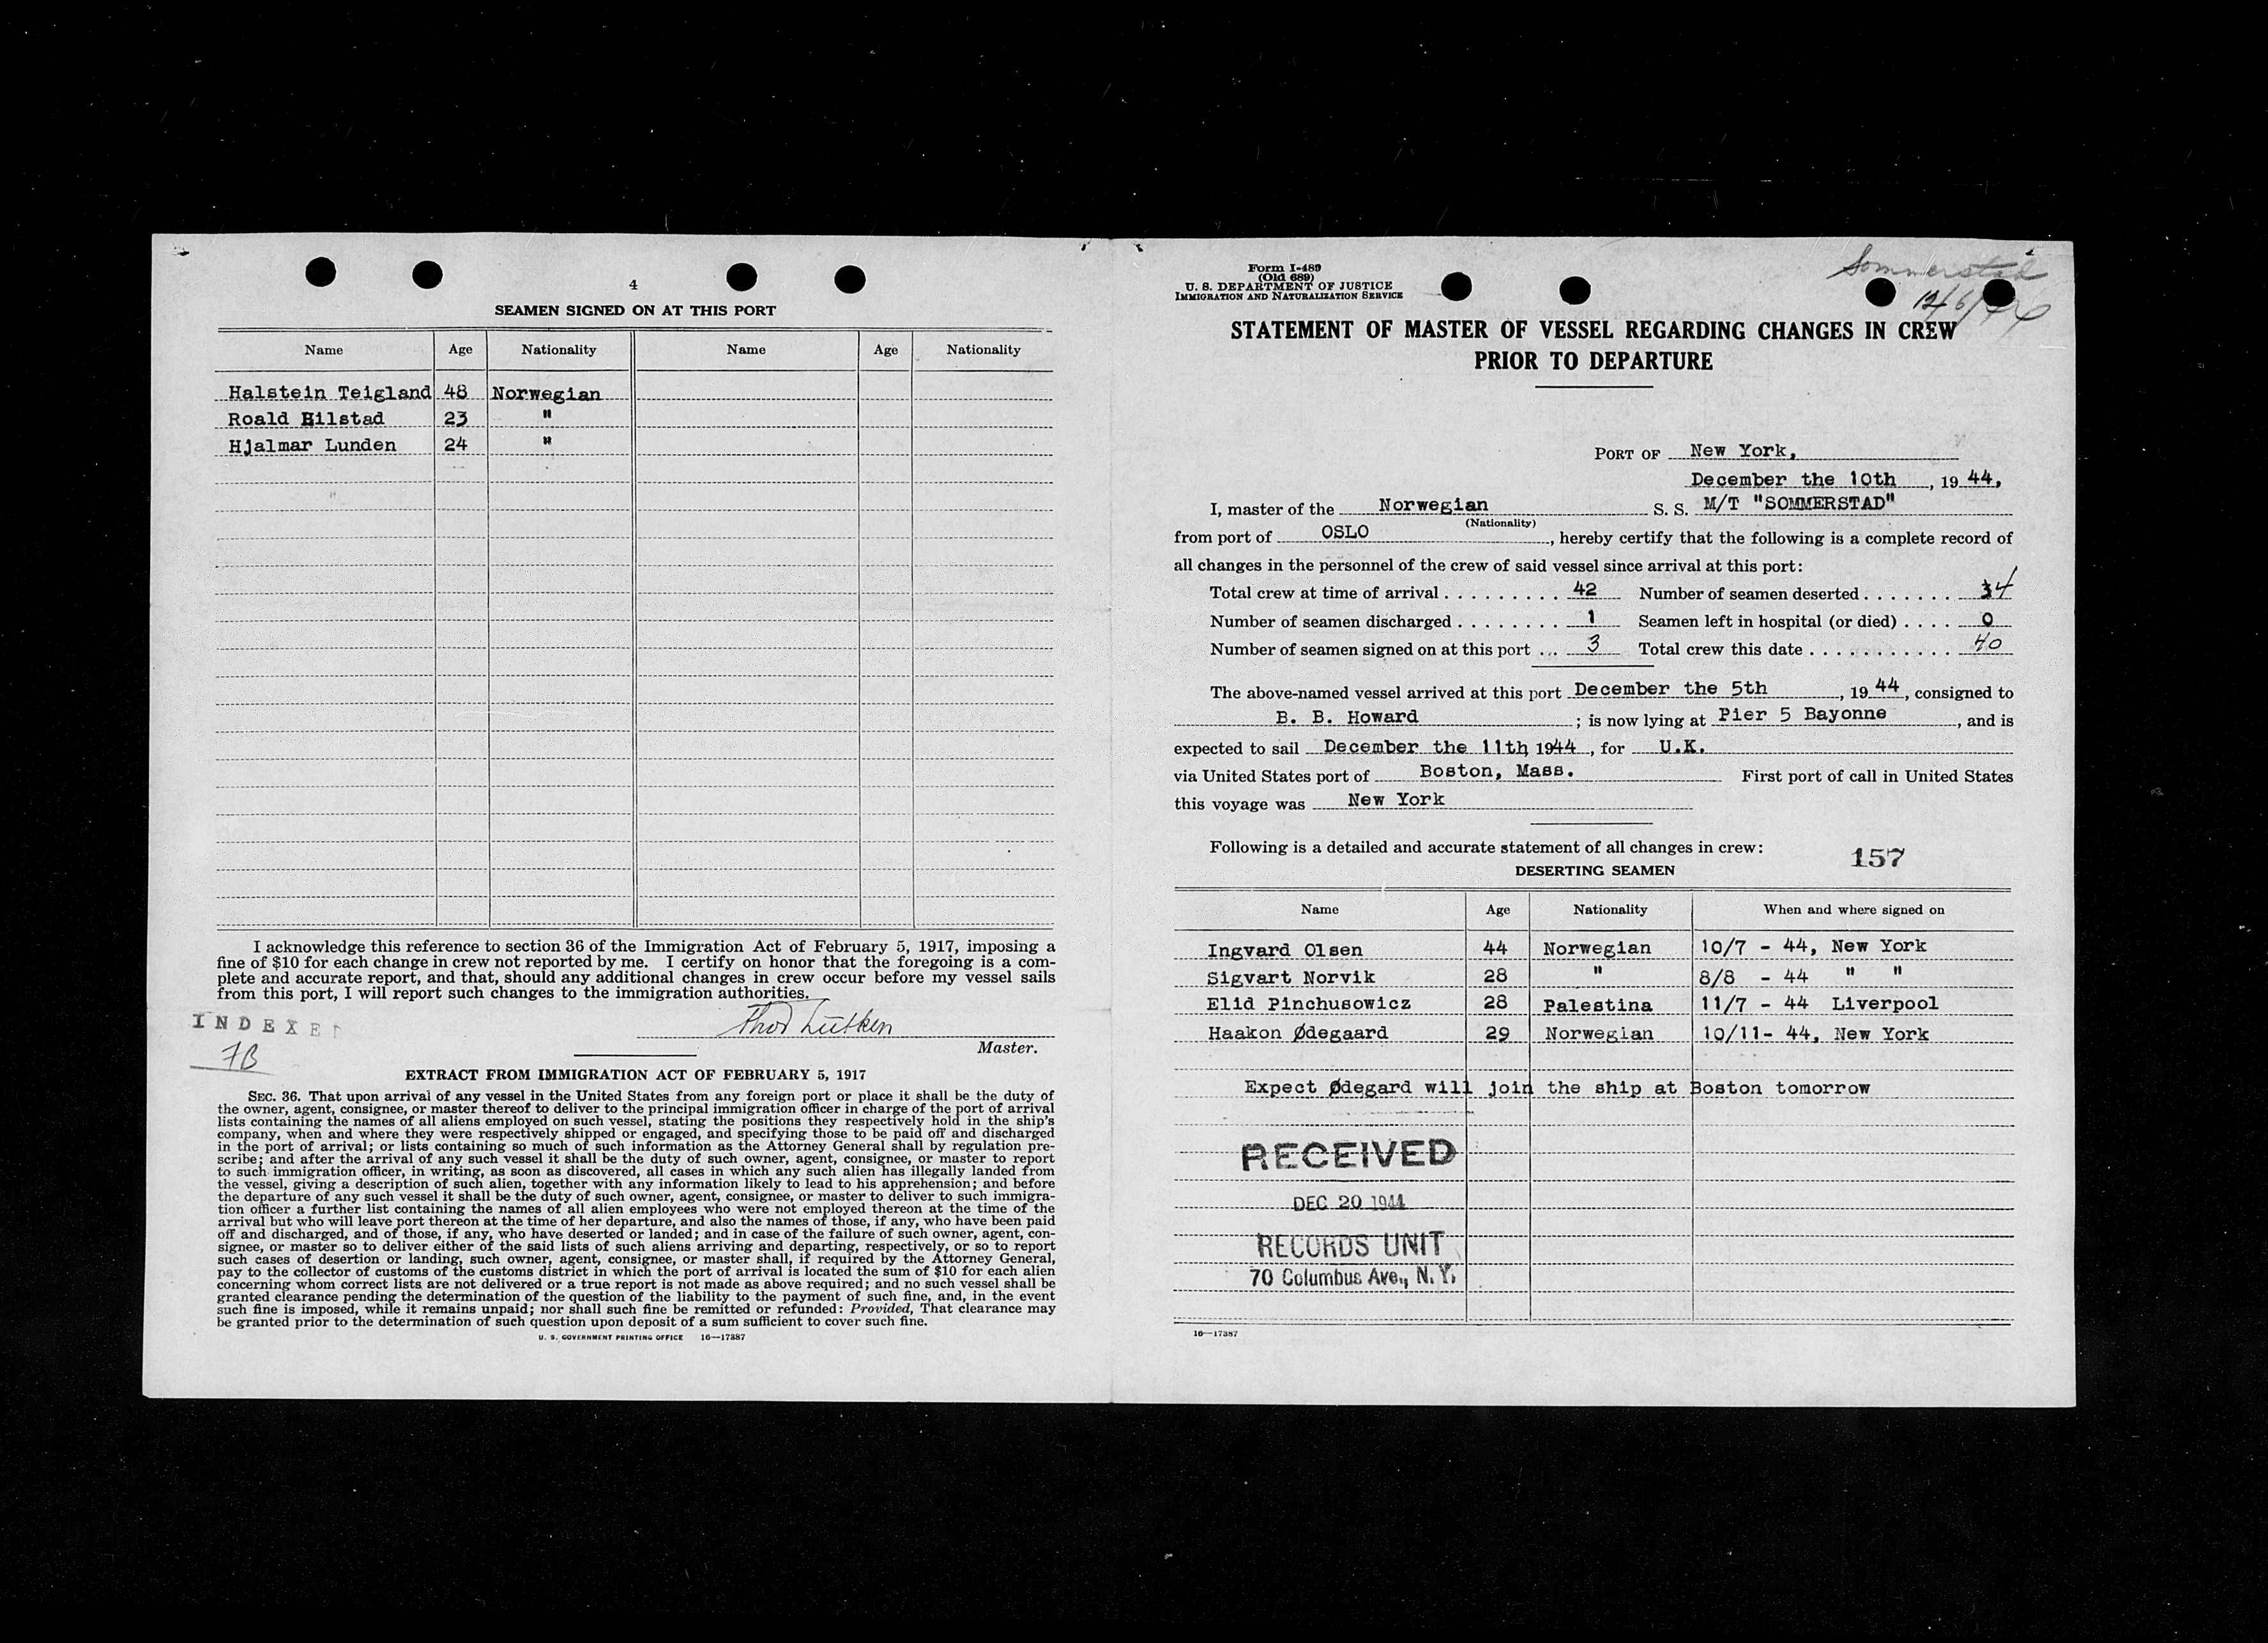 4
SEAMEN SIGNED ON AT THIS PORT
Name Age Nationality Name Age Nationality
Halstein Teigland 48 Norwegian
Roald Hilstad 23 "
Hjalmar Lunden 24 "
I acknowledge this reference to section 36 of the Immigration Act of February 5, 1917, imposing a
fine of $10 for each change in crew not reported by me. I certify on honor that the foregoing is a com-
plete and accurate report, and that, should any additional changes in crew occur before my vessel sails
from this port, I will report such changes to the immigration authorities.
INDEXED
Thod Lütken
Master.
7B
EXTRACT FROM IMMIGRATION ACT OF FEBRUARY 5, 1917
SEC. 36. That upon arrival of any vessel in the United States from any foreign port or place it shall be the duty of
the owner, agent, consignee, or master thereof to deliver to the principal immigration officer in charge of the port of arrival
lists containing the names of all aliens employed on such vessel, stating the positions they respectively hold in the ship's
company, when and where they were respectively shipped or engaged, and specifying those to be paid off and discharged
in the port of arrival; or lists containing so much of such information as the Attorney General shall by regulation pre-
scribe; and after the arrival of any such vessel it shall be the duty of such owner, agent, consignee, or master to report
to such immigration officer, in writing, as soon as discovered, all cases in which any such alien has illegally landed from
the vessel, giving a description of such alien, together with any information likely to lead to his apprehension; and before
the departure of any such vessel it shall be the duty of such owner, agent, consignee, or master to deliver to such immigra-
tion officer a further list containing the names of all alien employees who were not employed thereon at the time of the
arrival but who will leave port thereon at the time of her departure, and also the names of those, if any, who have been paid
off and discharged, and of those, if any, who have deserted or landed; and in case of the failure of such owner, agent, con-
signee, or master so to deliver either of the said lists of such aliens arriving and departing, respectively, or so to report
such cases of desertion or landing, such owner, agent, consignee, or master shall, if required by the Attorney General,
pay to the collector of customs of the customs district in which the port of arrival is located the sum of $10 for each alien
concerning whom correct lists are not delivered or a true report is not made as above required; and no such vessel shall be
granted clearance pending the determination of the question of the liability to the payment of such fine, and, in the event
such fine is imposed, while it remains unpaid; nor shall such fine be remitted or refunded: Provided, That clearance may
be granted prior to the determination of such question upon deposit of a sum sufficient to cover such fine.
U. S. GOVERNMENT PRINTING OFFICE 16—17387
Form I-489
(Old 689)
U. S. DEPARTMENT OF JUSTICE
IMMIGRATION AND NATURALIZATION SERVICE
Sommerstad
12/6/44
STATEMENT OF MASTER OF VESSEL REGARDING CHANGES IN CREW
PRIOR TO DEPARTURE
PORT OF New York,
December the 10th, 19 44,
I, master of the Norwegian S. S. M/T "SOMMERSTAD"
(Nationality)
from port of OSLO, hereby certify that the following is a complete record of
all changes in the personnel of the crew of said vessel since arrival at this port:
Total crew at time of arrival . . . . . . . . . 42 Number of seamen deserted . . . . . . . 34
Number of seamen discharged . . . . . . . . 1 Seamen left in hospital (or died) . . . . 0
Number of seamen signed on at this port . . . 3 Total crew this date . . . . . . . . . . . 40
The above-named vessel arrived at this port December the 5th, 19 44, consigned to
B. B. Howard; is now lying at Pier 5 Bayonne, and is
expected to sail December the 11th 1944, for U.K.
via United States port of Boston, Mass. First port of call in United States
this voyage was New York
Following is a detailed and accurate statement of all changes in crew:
157
DESERTING SEAMEN
Name Age Nationality When and where signed on
Ingvard Olsen 44 Norwegian 10/7 - 44, New York
Sigvart Norvik 28 " 8/8 - 44 " "
Elid Pinchusowicz 28 Palestina 11/7 - 44 Liverpool
Haakon Ødegaard 29 Norwegian 10/11- 44, New York
Expect Ødegard will join the ship at Boston tomorrow
RECEIVED
DEC 20 1944
RECORDS UNIT
70 Columbus Ave., N. Y.
16—17387